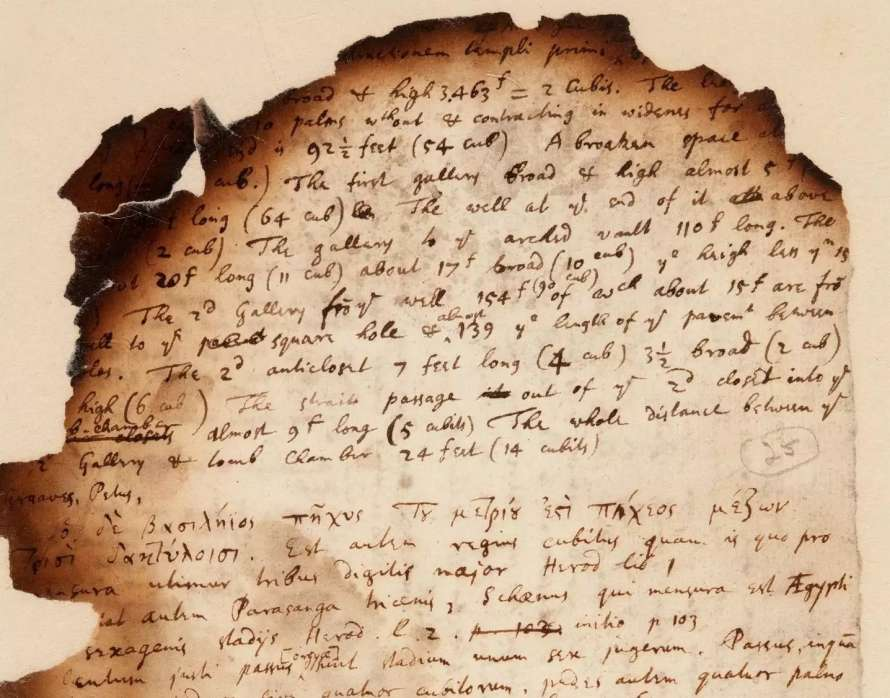 templi primi
broad & high 3.463f = 2 Cubits. The
10 palms wthout & contracting in widenes for
is 92½ feet (54 cub) A broaken space
long cub.) The first gallery broad & high almost 5f
f long (64 cub) The well at ye end of it above
(2 cub) The gallery to ye arched vault 110f long. The
20f long (11 cub) about 17f broad (10 cub) ye heigh less yn 15
) The 2d Gallery frō ye well 154f (90 cub) of wch about 15f are frō
to ye square hole & almost 139 ye length of ye pavemt between
The 2d anticloset 7 feet long (4 cub) 3½ broad (2 cub)
high (6 cub) The strait passage out of ye 2d closet into ye
chamber almost 9f long (5 cubits) The whole distance between ye
2 Gallery & tomb chamber 24 feet (14 cubits)
Greaves, Petus,
ὁ δὲ βασιλήϊος πῆχυς τοῦ μετρίου ἐστὶ πήχεος μέζων
τρισὶ δακτύλοισι. Est autem regius cubitus quam is quo pro
mensura utimur tribus digitis major Herod lib 1
autem Parasanga tricenis, Schœnus qui mensura est Ægypti
sexagenis stadijs Herod. l. 2. initio p 103
Centum justi passus stadium unum sex jugerum. Passus, inquā
quatuor cubitorum, pedes autem quatuor palmo
28